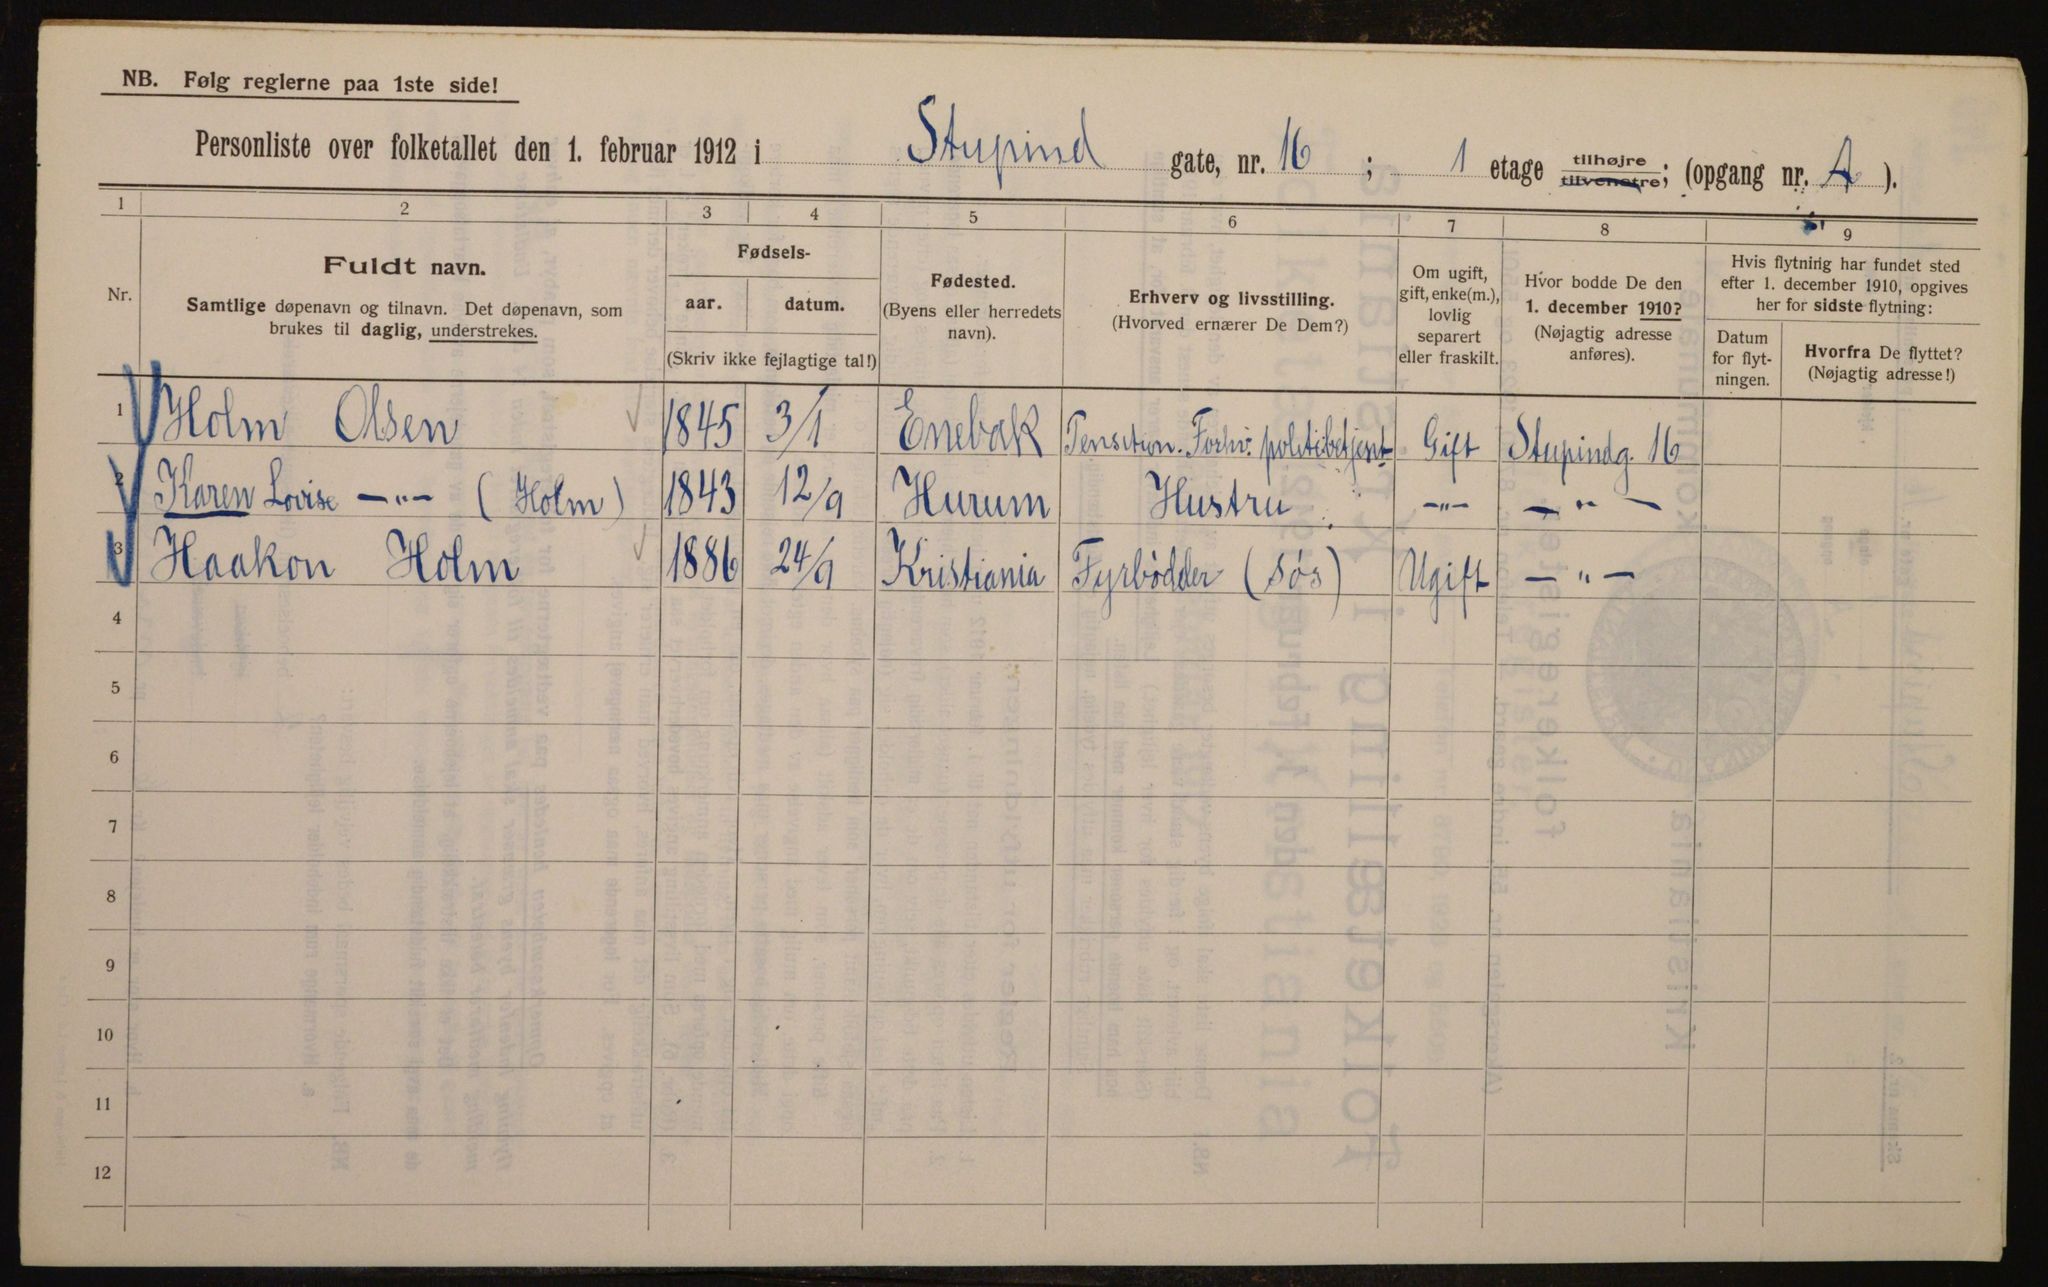 NB. Følg reglerne paa 1ste side!
Personliste over folketallet den 1. februar 1912 i Stupind gate, nr. 16 ; 1 etage tilhøjre tilvenstre; (opgang nr. A ).
1 2 3 4 5 6 7 8 9
Nr.
Fuldt navn.
Samtlige døpenavn og tilnavn. Det døpenavn, som
brukes til daglig, understrekes.
Fødsels-
aar. datum.
(Skriv ikke fejlagtige tal!)
Fødested.
(Byens eller herredets
navn).
Erhverv og livsstilling.
(Hvorved ernærer De Dem?)
Om ugift,
gift, enke(m.),
lovlig
separert
eller fraskilt.
Hvor bodde De den
1. december 1910?
(Nøjagtig adresse
anføres).
Hvis flytning har fundet sted
efter 1. december 1910, opgives
her for sidste flytning:
Datum
for flyt-
ningen.
Hvorfra De flyttet?
(Nøjagtig adresse!)
1 Holm Olsen 1845 3/1 Enebak Forhv. politibetjent Gift Stupindg. 16
2 Karen Lovise —"— (Holm) 1843 12/9 Hurum Hustru —"— —"—
3 Haakon Holm 1886 24/9 Kristiania Fyrbødder (søs) Ugift —"—
4
5
6
7
8
9
10
11
12